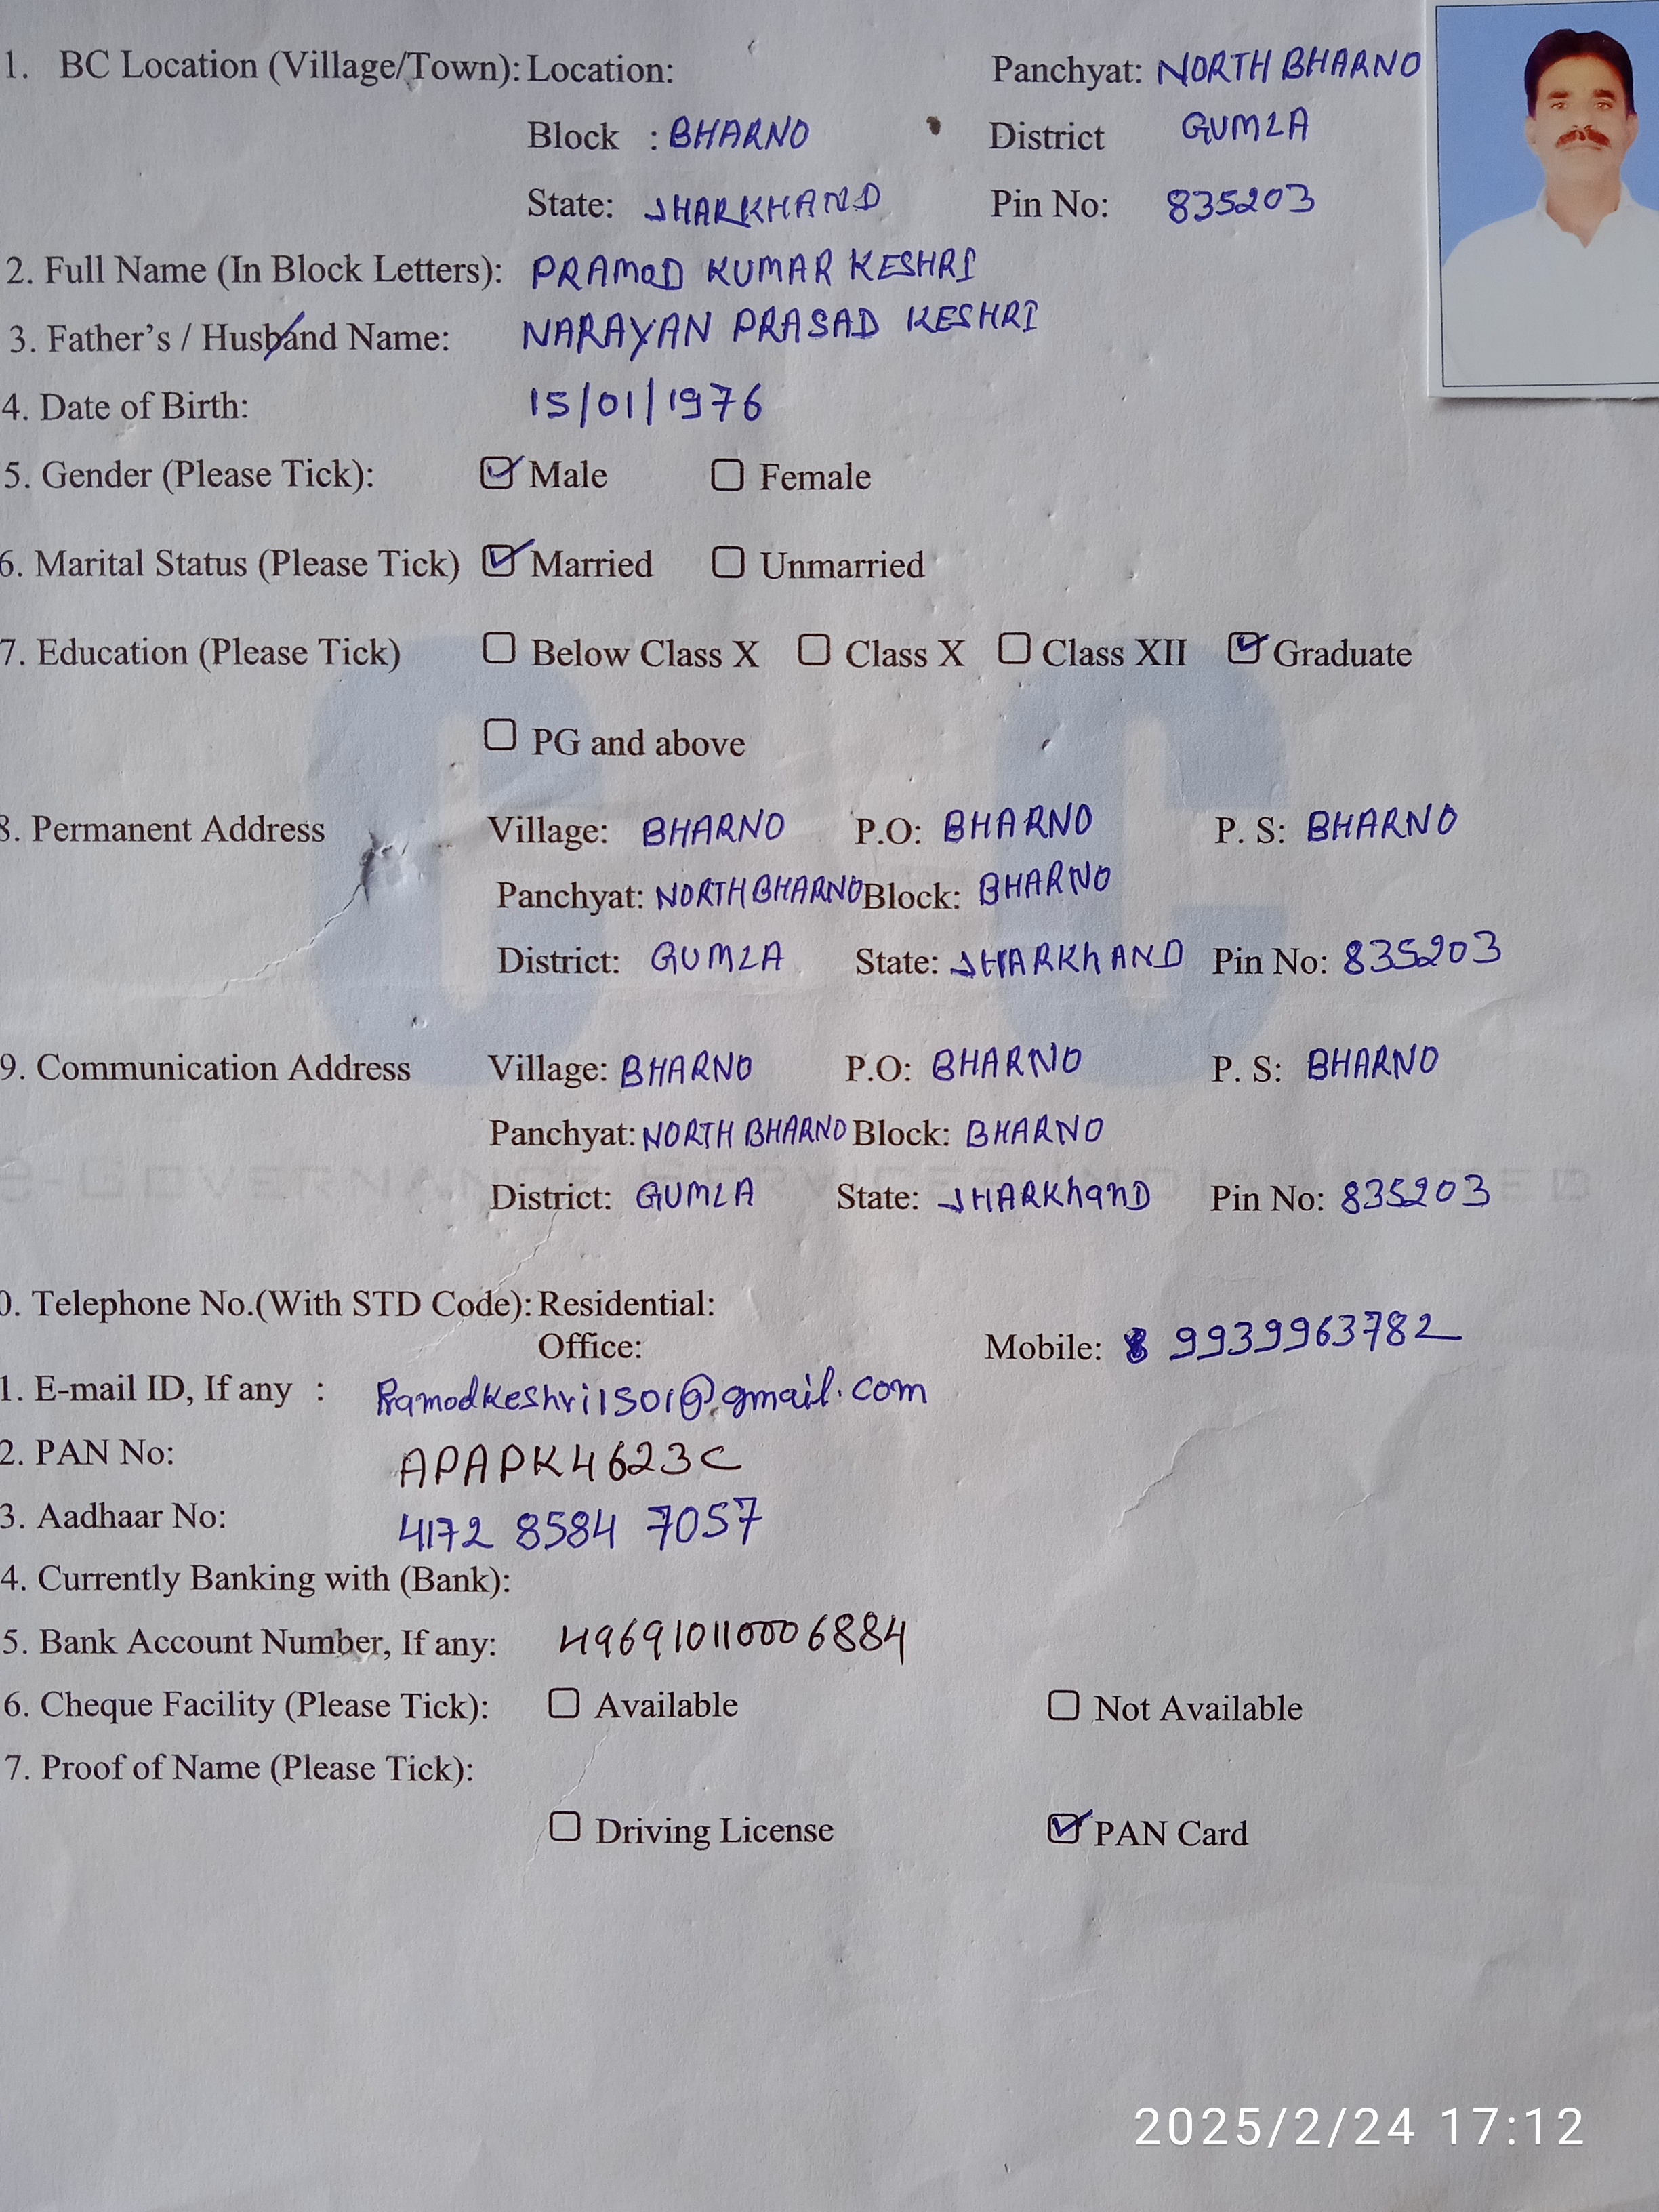 1. BC Location (Village/Town): Location: Panchyat: NORTH BHARNO
Block : BHARNO District GUMLA
State: JHARKHAND Pin No: 835203
2. Full Name (In Block Letters): PRAMOD KUMAR KESHRI
3. Father's / Husband Name: NARAYAN PRASAD KESHRI
4. Date of Birth: 15/01/1976
5. Gender (Please Tick): Male Female
6. Marital Status (Please Tick) Married Unmarried
7. Education (Please Tick) Below Class X Class X Class XII Graduate
PG and above
8. Permanent Address Village: BHARNO P.O: BHARNO P. S: BHARNO
Panchyat: NORTH BHARNO Block: BHARNO
District: GUMLA State: JHARKhAND Pin No: 835203
9. Communication Address Village: BHARNO P.O: BHARNO P. S: BHARNO
Panchyat: NORTH BHARNO Block: BHARNO
e-GOVERNANCE SERVICES INDIA LIMITED
District: GUMLA State: JHARKhanD Pin No: 835203
0. Telephone No.(With STD Code): Residential:
Office: Mobile: 9939963782
1. E-mail ID, If any : Pramodkeshri1501@gmail.com
2. PAN No: APAPK4623C
3. Aadhaar No: 4172 8584 7057
4. Currently Banking with (Bank):
5. Bank Account Number, If any: 496910110006884
6. Cheque Facility (Please Tick): Available Not Available
7. Proof of Name (Please Tick):
Driving License PAN Card
2025/2/24 17:12